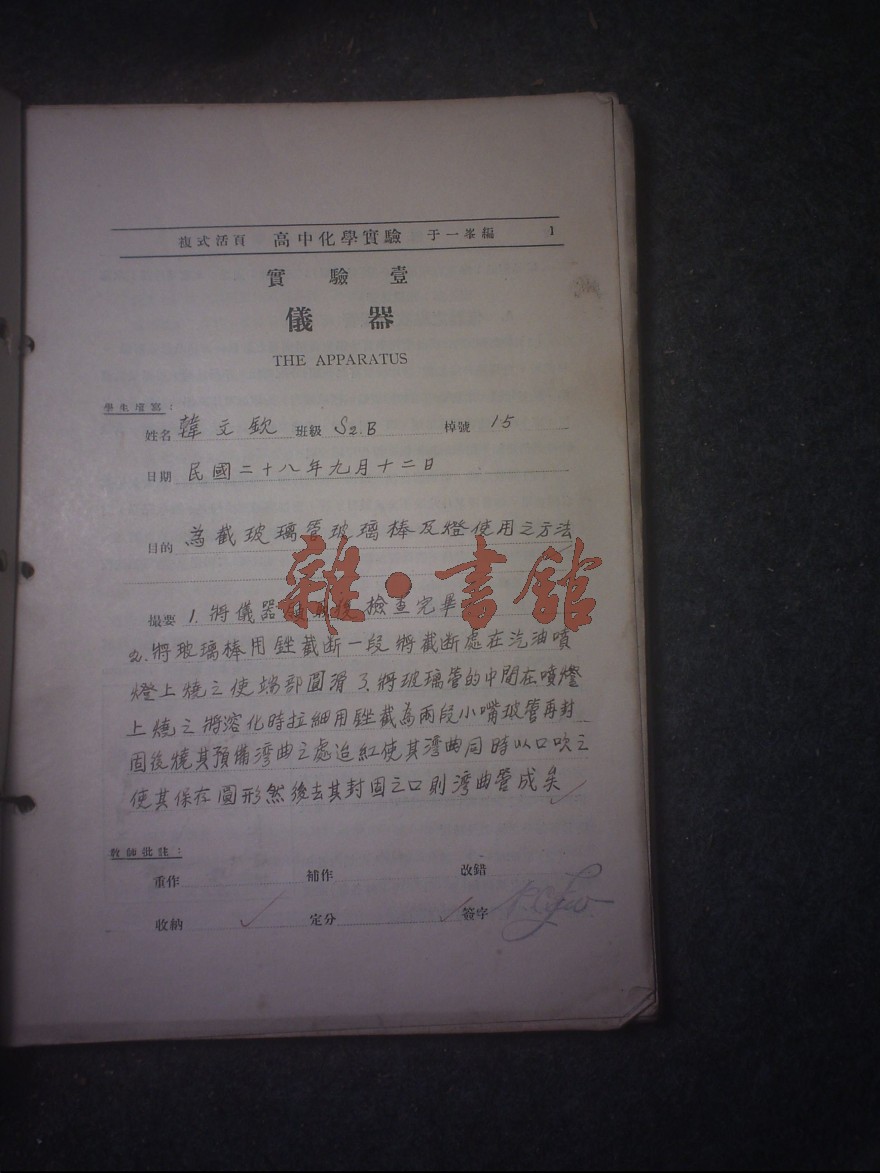 複式活頁 高中化學實驗 于一峯編 1
實驗壹
儀器
THE APPARATUS
學生填寫：
姓名 韓文欽 班級 S2.B 棹號 15
日期 民國二十八年九月十二日
目的 為截玻璃管玻璃棒及燈使用之方法
雜·書館
撮要 1.將儀器 檢查完畢
2.將玻璃棒用銼截斷一段將截斷處在汽油噴
燈上燒之使端部圓滑 3.將玻璃管的中間在噴燈
上燒之將溶化時拉細用銼截為兩段小嘴玻管再封
固後燒其預備灣曲之處追紅使其灣曲同時以口吹之
使其保存圓形然後去其封固之口則灣曲管成矣
教師批註：
重作 補作 改錯
收納 ✓ 定分 ✓ 簽字